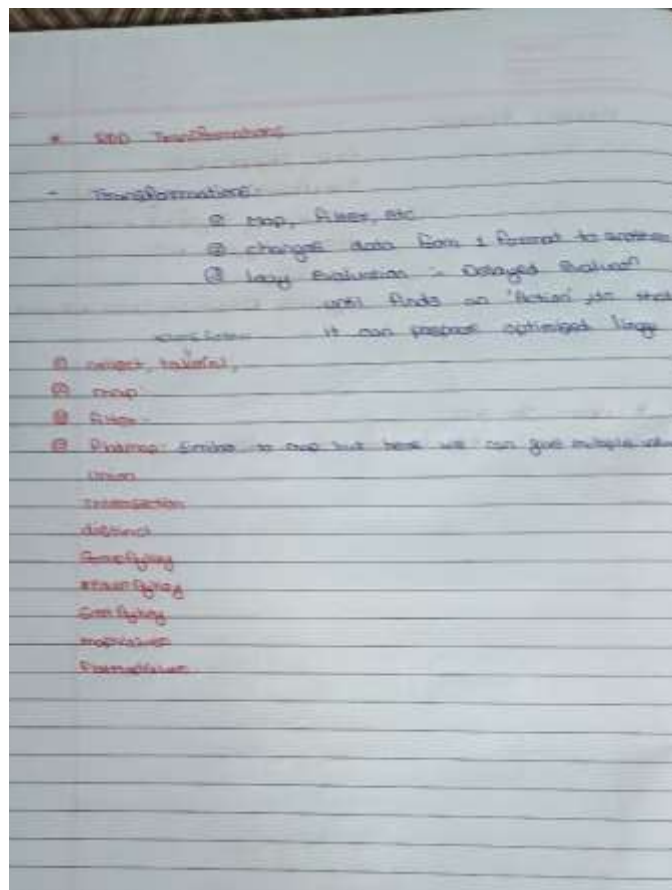 * RDD Transformations
- Transformations:
① Map, filter, etc
② changes data from 1 format to another
③ lazy Evaluation :- Delayed Evaluan
until finds an 'Action', so that
it can prepare optimised
① collect, take(n),
② map
③ filter
④ Flatmap: Similar to map but here we can give multiple
Union
Intersection
distinct
GroupByKey
SortByKey
mapValues